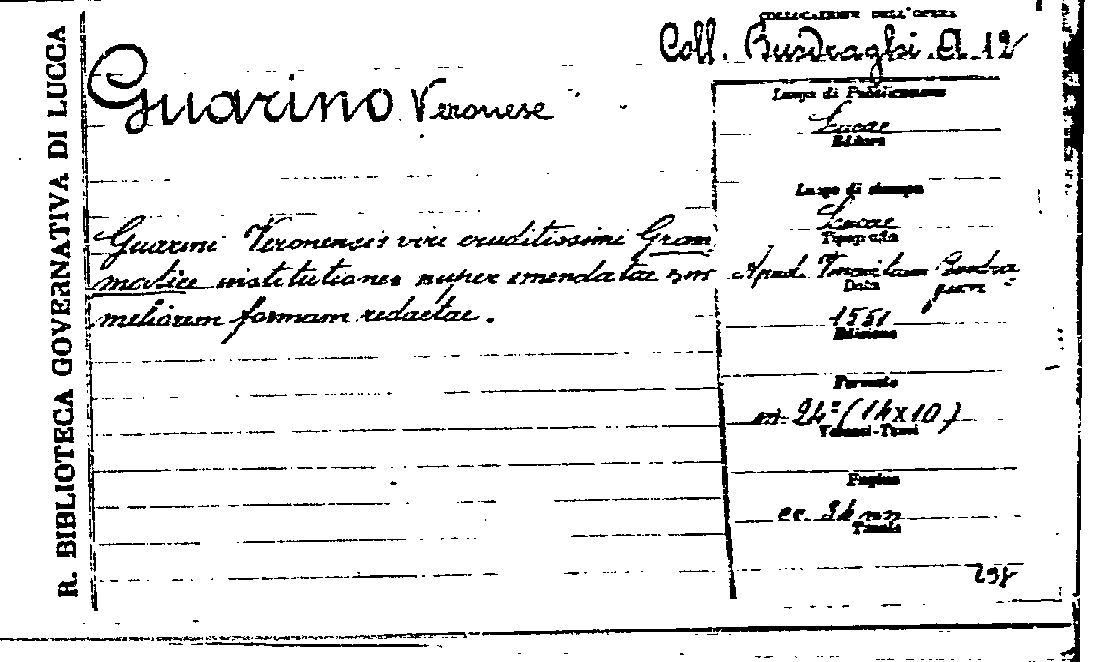 R. BIBLIOTECA GOVERNATIVA DI LUCCA
COLLOCAZIONE DELL'OPERA
Coll. Busdraghi A. 12
Guarino Veronese
Guarini Veronensis viri eruditissimi Gram
matice institutiones nuper emendatae in
meliorem formam redactae.
Luogo di Pubblicazione
Lucae
Editore
Luogo di stampa
Lucae
Tipografia
Apud
Data
1551
Edizione
Formato
in 24º (14x10)
Volumi-Tomi
Pagine
cc. 34 nn
Tavole
298